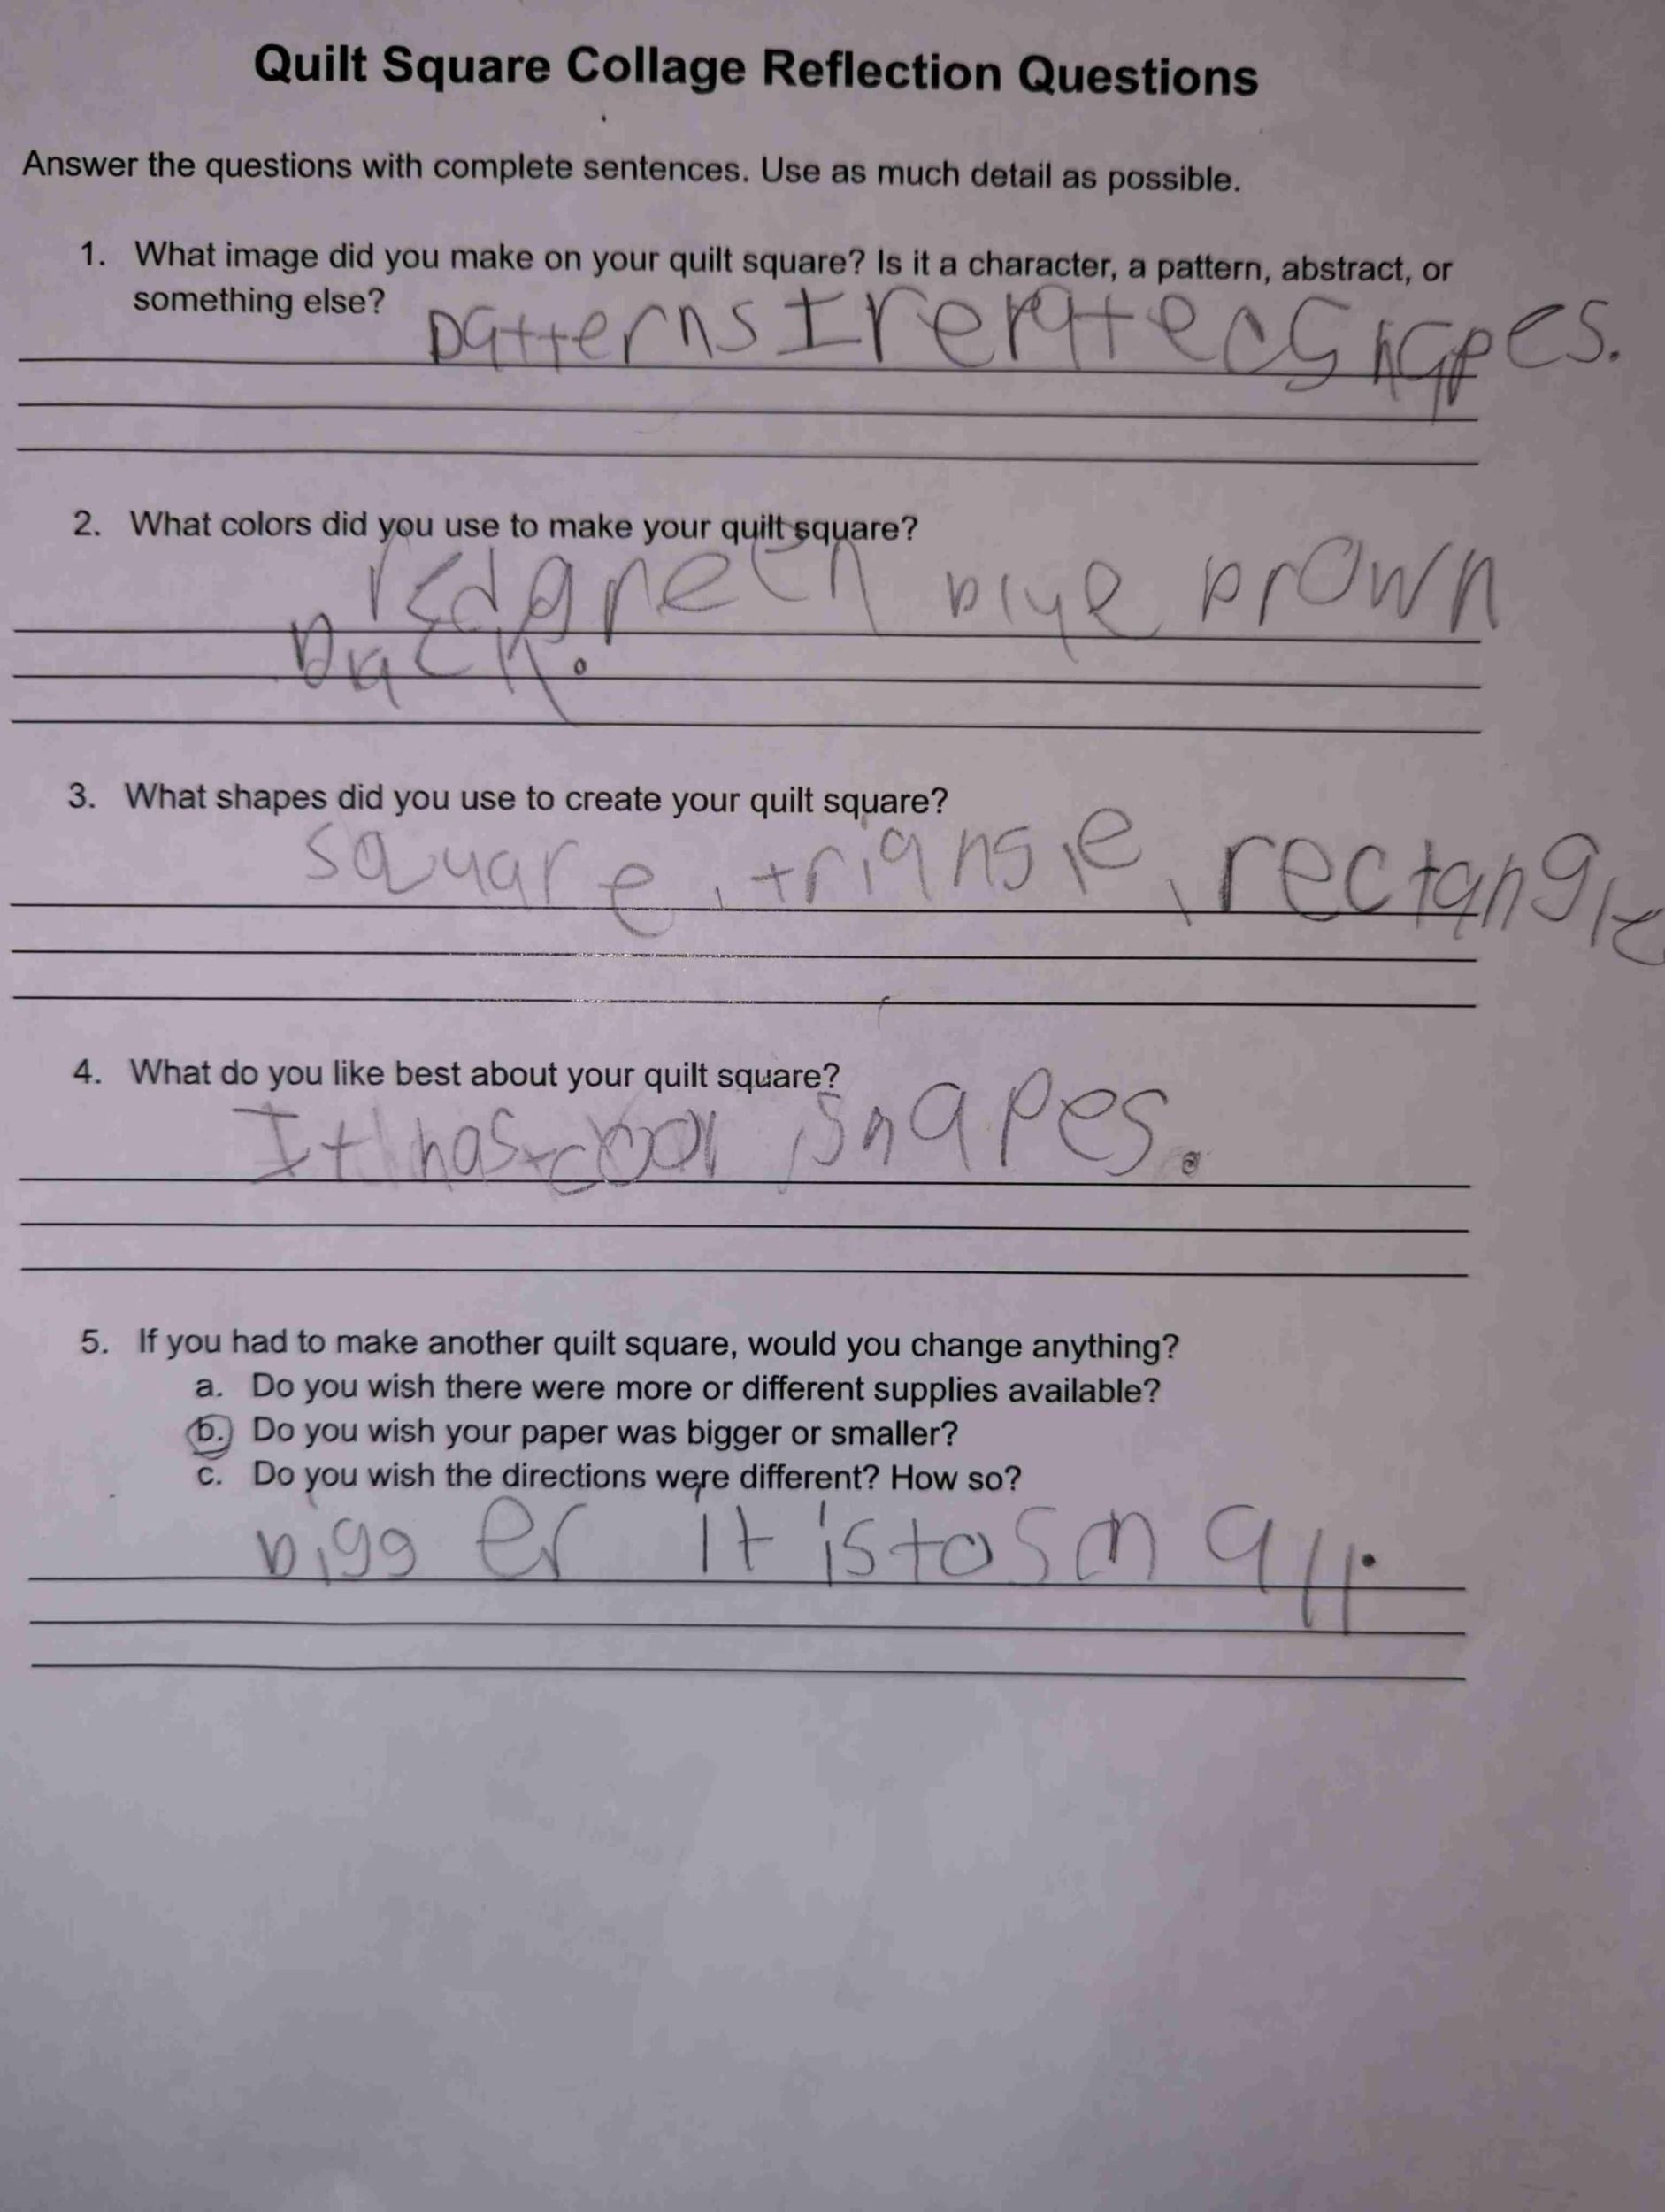 Quilt Square Collage Reflection Questions
Answer the questions with complete sentences. Use as much detail as possible.
1. What image did you make on your quilt square? Is it a character, a pattern, abstract, or
something else?
patterns I repated shapes.
2. What colors did you use to make your quilt square?
red green blue brown
3. What shapes did you use to create your quilt square?
square, triangle, rectangle
4. What do you like best about your quilt square?
It has cool shapes.
5. If you had to make another quilt square, would you change anything?
a. Do you wish there were more or different supplies available?
b. Do you wish your paper was bigger or smaller?
c. Do you wish the directions were different? How so?
bigger It is to small.